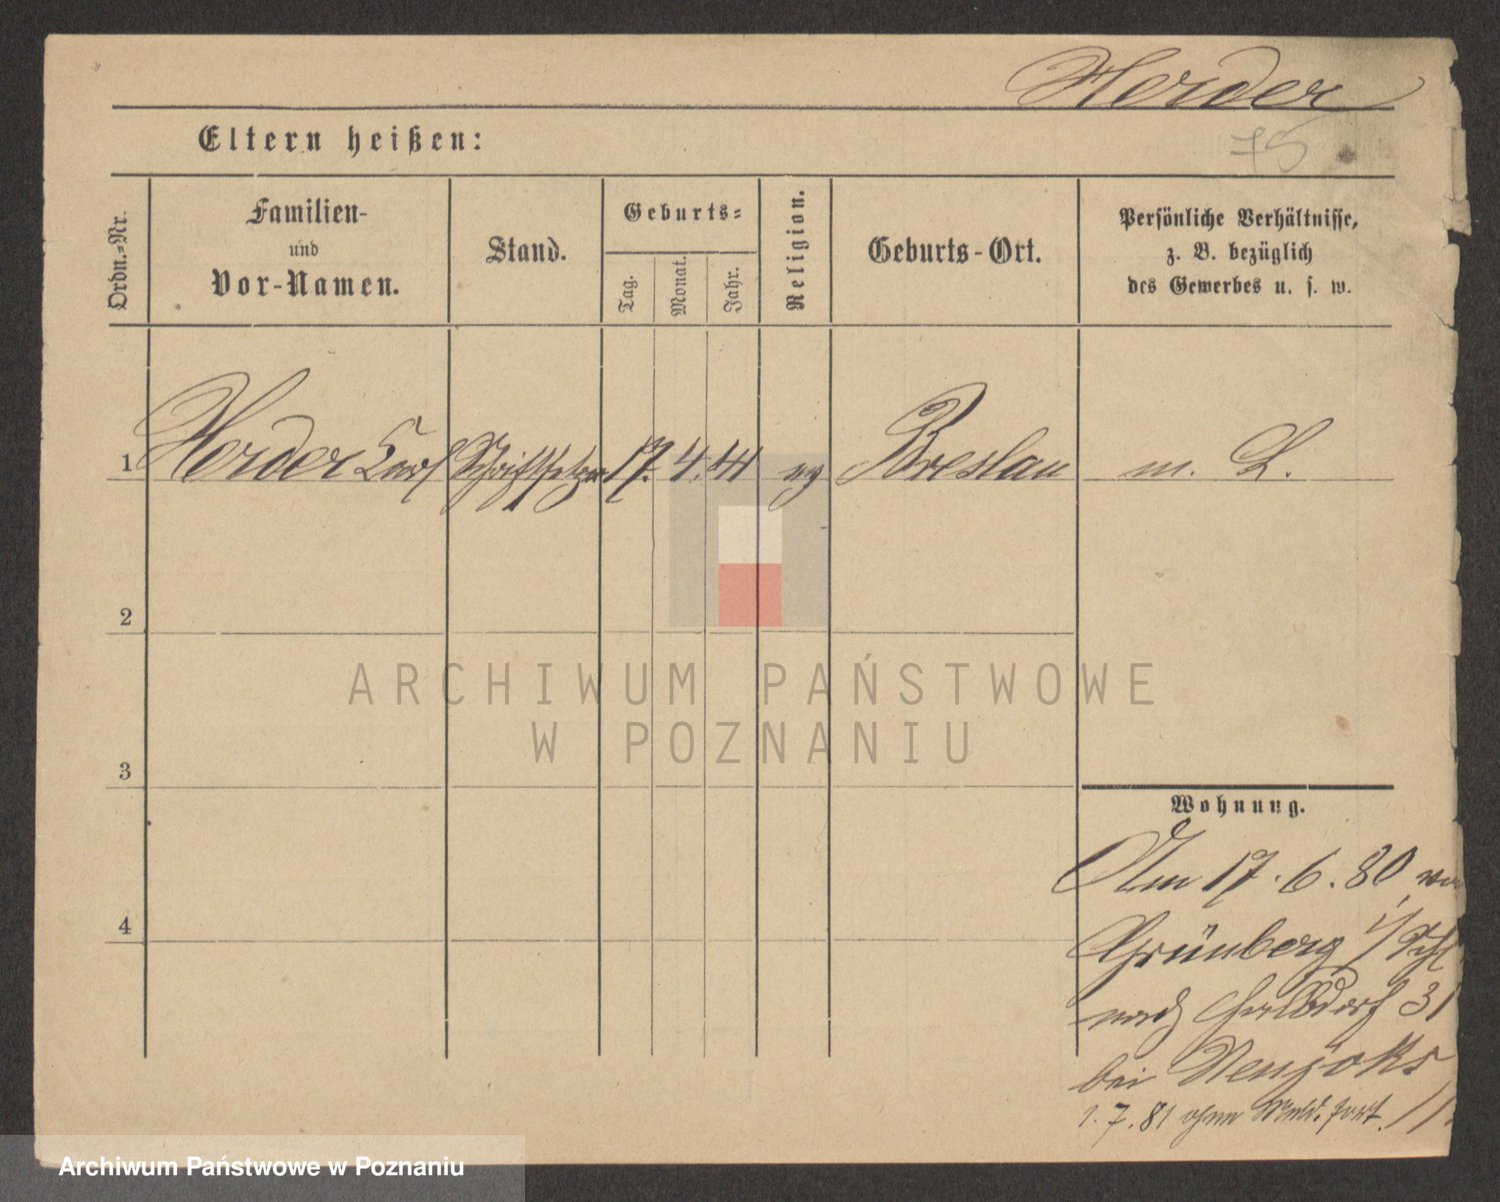 Herder
75
Eltern heißen:
Ordn.-Nr.
Familien-
und
Vor-Namen.
Stand.
Geburts-
Tag.
Monat.
Jahr.
Religion.
Geburts-Ort.
Persönliche Verhältnisse,
z. B. bezüglich
des Gewerbes u. s. w.
1 Herder Carl Schriftsetzer 17. 4. 44 ev Breslau m. L.
2
3
4
Wohnung.
Am 17.6.80 von
Grünberg i/Schl
nach 31
bei
1.7.81 ohne Meld. fort.
ARCHIWUM PAŃSTWOWE
W POZNANIU
Archiwum Państwowe w Poznaniu